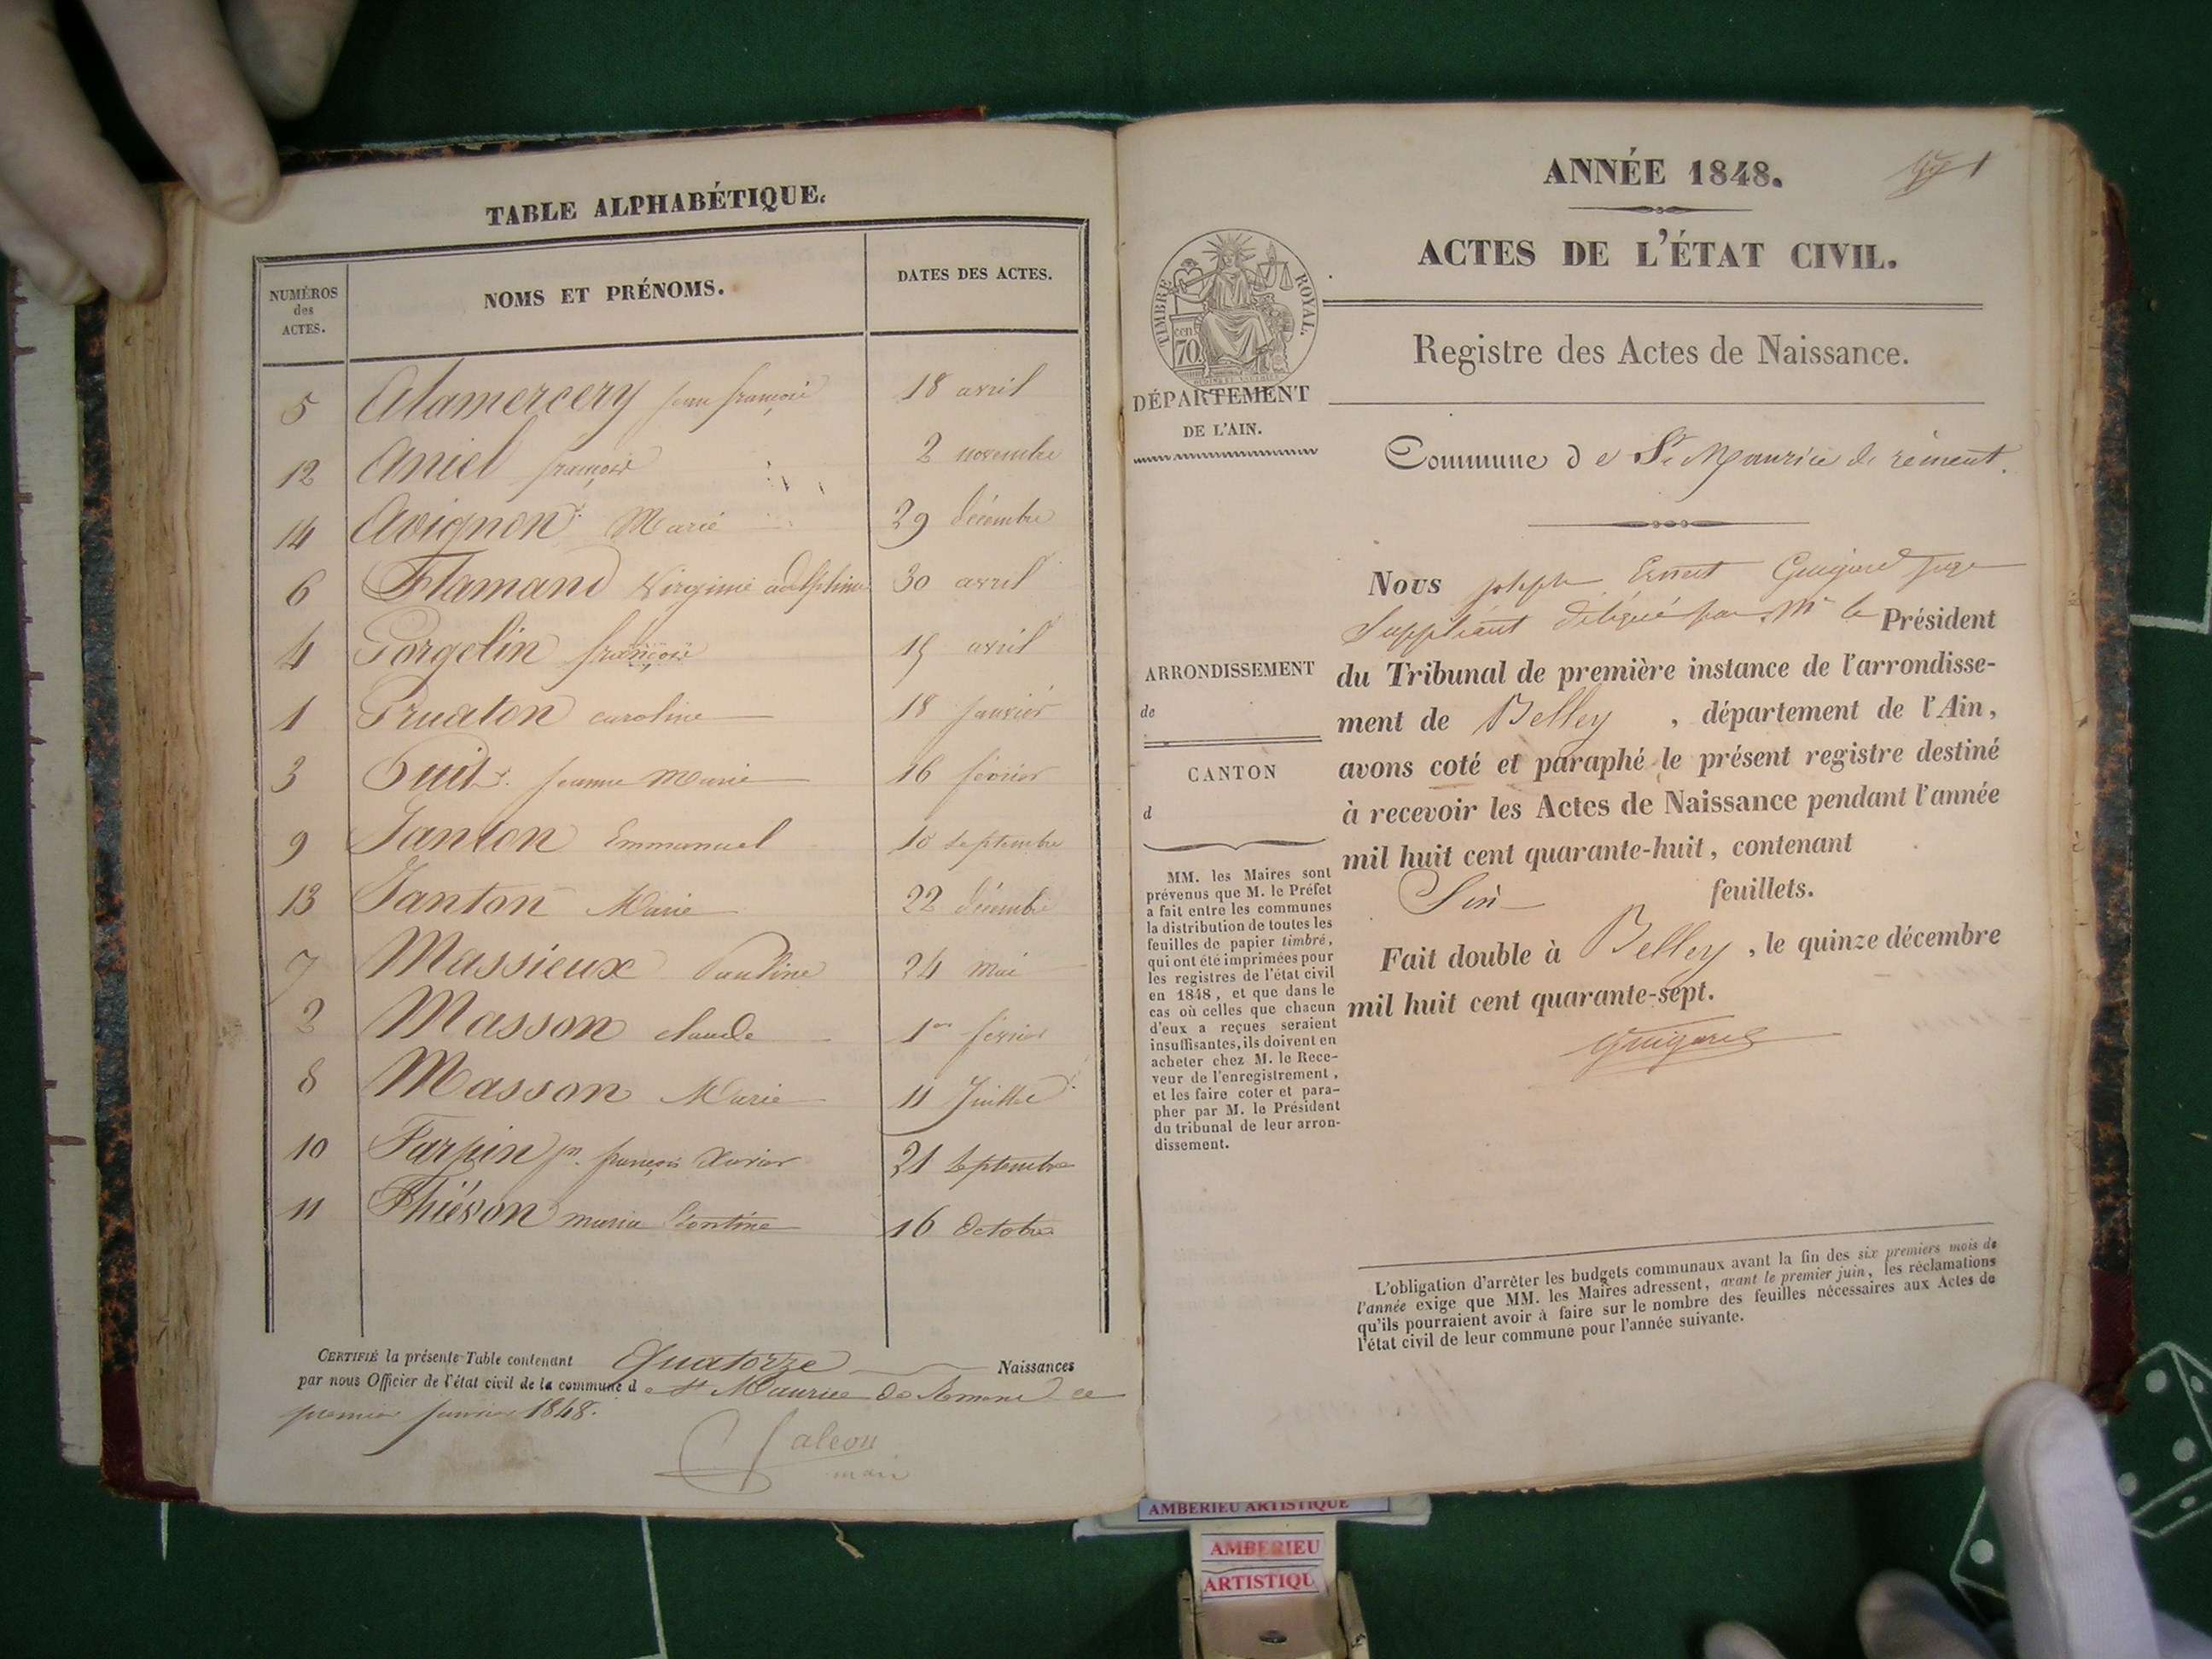 TABLE ALPHABÉTIQUE.
NUMÉROS
des
ACTES.
NOMS ET PRÉNOMS.
DATES DES ACTES.
5 Alamercery jean françois 18 avril
12 Aniel françois 2 novembre
14 Avignon Marie 29 décembre
6 Flamand Virginie adelphine 30 avril
4 Gorgelin françois 15 avril
1 Gruaton caroline 18 janvier
3 Guil jeanne Marie 16 février
9 Janton Emmanuel 10 septembre
13 Janton Marie 22 décembre
7 Massieux Pauline 24 mai
2 Masson claude 1er février
8 Masson Marie 11 Juillet
10 Tarpin jn. françois Xavier 21 septembre
11 Thiévon maria Léontine 16 octobre
CERTIFIÉ la présente Table contenant Quatorze Naissances
par nous Officier de l'état civil de la commune de St Maurice de Remens ce
premier janvier 1848.
maire
ANNÉE 1848.
1
ACTES DE L'ÉTAT CIVIL.
TIMBRE ROYAL.
70 cen.
DÉPARTEMENT
DE L'AIN.
Registre des Actes de Naissance.
Commune de St Maurice de rement.
Nous joseph Ernest Guigard juge
Suppléant délégué par Mr le Président
du Tribunal de première instance de l'arrondisse-
ment de Belley, département de l'Ain,
avons coté et paraphé le présent registre destiné
à recevoir les Actes de Naissance pendant l'année
mil huit cent quarante-huit, contenant
Six feuillets.
Fait double à Belley, le quinze décembre
mil huit cent quarante-sept.
Guigard
ARRONDISSEMENT
de
CANTON
d
MM. les Maires sont
prévenus que M. le Préfet
a fait entre les communes
la distribution de toutes les
feuilles de papier timbré,
qui ont été imprimées pour
les registres de l'état civil
en 1848, et que dans le
cas où celles que chacun
d'eux a reçues seraient
insuffisantes, ils doivent en
acheter chez M. le Rece-
veur de l'enregistrement,
et les faire coter et para-
pher par M. le Président
du tribunal de leur arron-
dissement.
L'obligation d'arrêter les budgets communaux avant la fin des six premiers mois de
l'année exige que MM. les Maires adressent, avant le premier juin, les réclamations
qu'ils pourraient avoir à faire sur le nombre des feuilles nécessaires aux Actes de
l'état civil de leur commune pour l'année suivante.
AMBERIEU ARTISTIQUE
AMBERIEU
ARTISTIQU